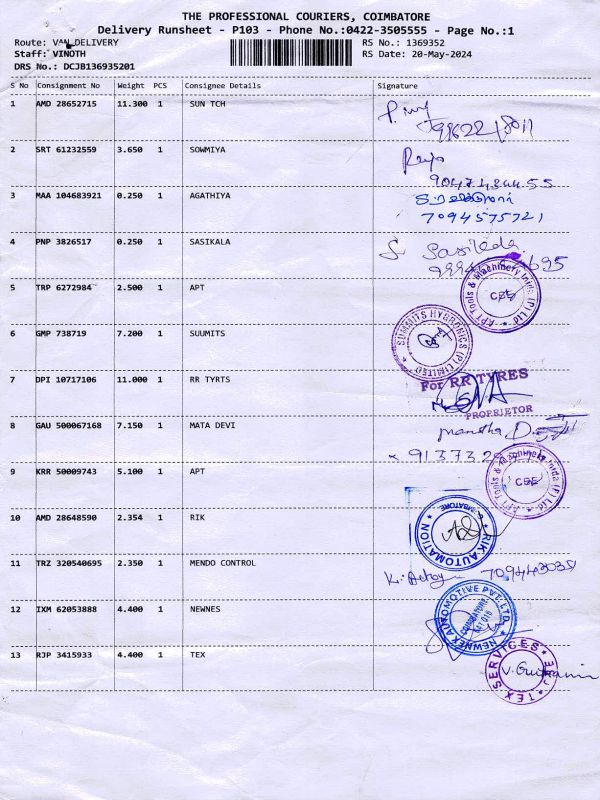 THE PROFESSIONAL COURIERS, COIMBATORE
Delivery Runsheet - P103 - Phone No.:0422-3505555 - Page No.:1
Route: VAN DELIVERY RS No.: 1369352
Staff: VINOTH RS Date: 20-May-2024
DRS No.: DCJB136935201
S No Consignment No Weight PCS Consignee Details Signature
1 AMD 28652715 11.300 1 SUN TCH
2 SRT 61232559 3.650 1 SOWMIYA
3 MAA 104683921 0.250 1 AGATHIYA
7094575721
4 PNP 3826517 0.250 1 SASIKALA
5 TRP 6272984 2.500 1 APT
APT Tools & Machinery India (P) Ltd
CBE
6 GMP 738719 7.200 1 SUUMITS
SUMMITS HYGRONICS (P) LIMITED
7 DPI 10717106 11.000 1 RR TYRTS
For RR TYRES
PROPRIETOR
8 GAU 500067168 7.150 1 MATA DEVI
9 KRR 50009743 5.100 1 APT
APT Tools & Machinery India (P) Ltd
CBE
10 AMD 28648590 2.354 1 RIK
RIK AUTOMATION
COIMBATORE
11 TRZ 320540695 2.350 1 MENDO CONTROL
12 IXM 62053888 4.400 1 NEWNES
NEWNEX AUTOMOTIVE PVT. LTD.
COIMBATORE
13 RJP 3415933 4.400 1 TEX
TEX SERVICES